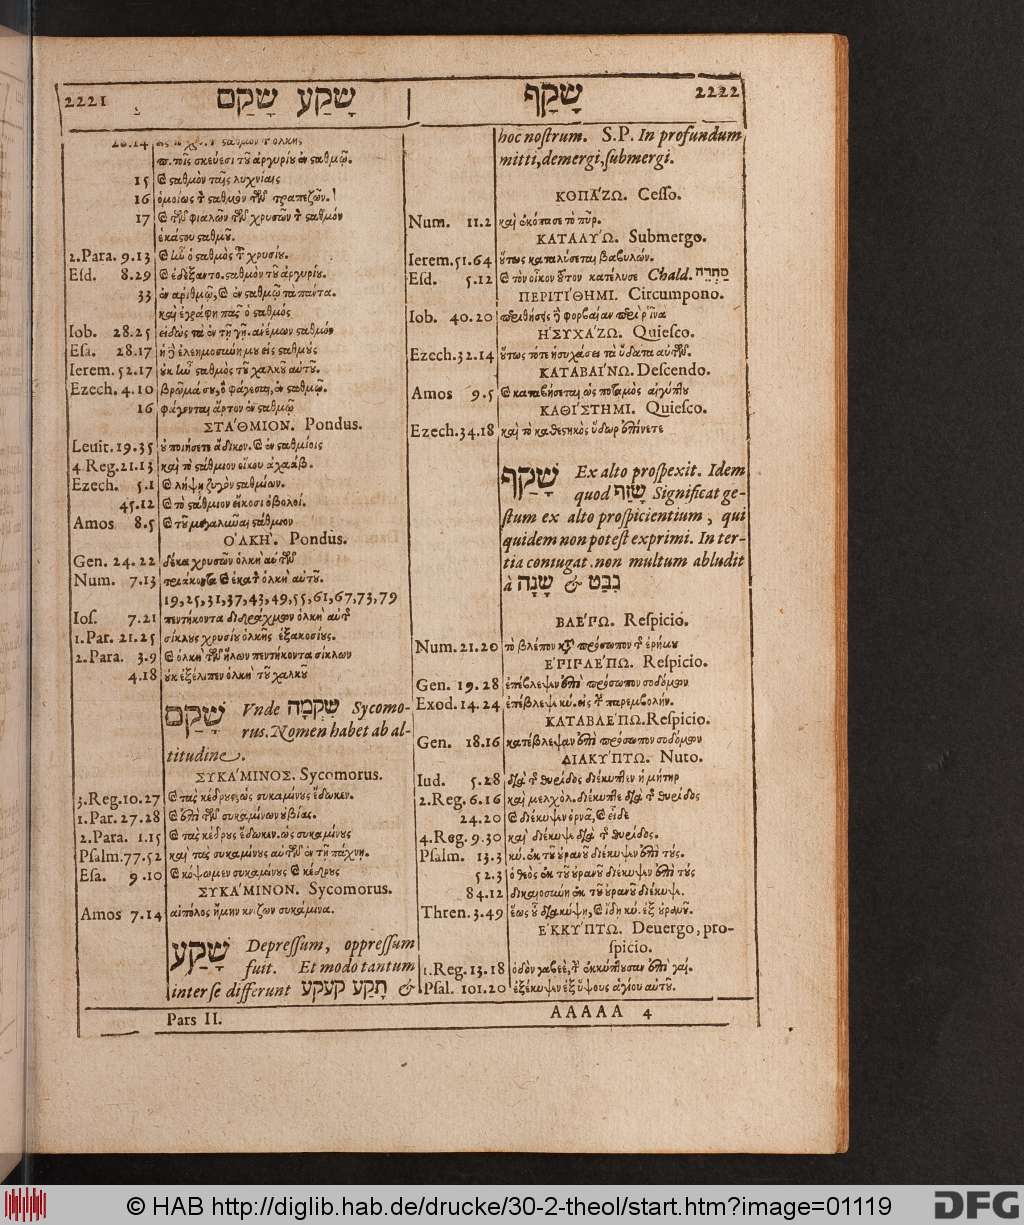 2221 שָׁקַע שָׁקַם
שָׁקַף 2222
π. τοῖς σκεύεσι τοῦ ἀργυρίου ἐν σαθμῷ.
15 ϗ σαθμὸν ταῖς λυχνίαις
16 ὁμοίως τ σαθμὸν τῶν τραπεζῶν.
17 ϗ τῶν φιαλῶν τῶν χρυσῶν τ σαθμόν
ἑκάστου σαθμοῦ.
2.Para. 9.13 ϗ ἦν ὁ σαθμὸς τ χρυσίου.
Esd. 8.29 ϗ ἐδέξαντο. σαθμὸν τοῦ ἀργυρίου.
33 ἐν ἀριθμῷ, ϗ ἐν σαθμῷ τὰ πάντα.
καὶ ἐγράφη πᾶς ὁ σαθμός
Iob. 28.25 εἰδὼς τὰ ἐν τῇ γῇ. ἀνέμων σαθμόν
Esa. 28.17 ἡ δὲ ἐλεημοσύνη μου εἰς σαθμούς
Ierem. 52.17 οὐκ ἦν σαθμὸς τοῦ χαλκοῦ αὐτοῦ.
Ezech. 4.10 βρῶμά σου, ὃ φάγεσαι, ἐν σαθμῷ.
16 φάγονται ἄρτον ἐν σαθμῷ
ΣΤΑΘΜΙΟΝ. Pondus.
Leuit. 19.35 οὐ ποιήσετε ἄδικον. ϗ ἐν σαθμίοις
4 Reg. 21.13 καὶ τὸ σάθμιον οἴκου ἀχαάβ.
Ezech. 5.1 ϗ λήψῃ ζυγὸν σαθμίων.
45.12 ϗ τὸ σάθμιον εἴκοσι ὀβολοί.
Amos 8.5 ϗ τοῦ μεγαλῦναι σάθμιον
ΟΛΚΗ. Pondus.
Gen. 24.22 δέκα χρυσῶν ὁλκὴ αὐτῶν
Num. 7.13 τριάκοντα ϗ ἑκατὸν ὁλκὴ αὐτοῦ.
19, 25, 31, 37, 43, 49, 55, 61, 67, 73, 79
Ios. 7.21 πεντήκοντα διδράχμων ὁλκὴ αὐτ
1.Par. 21.25 σίκλους χρυσίου ὁλκῆς ἑξακοσίους.
2.Para. 3.9 ϗ ὁλκὴ τῶν ἥλων πεντήκοντα σίκλων
4.18 οὐκ ἐξέλιπεν ὁλκὴ τοῦ χαλκοῦ
שָׁקַם Vnde שִׁקְמָה Sycomo-
rus. Nomen habet ab al-
titudine.
ΣΥΚΑΜΙΝΟΣ. Sycomorus.
3.Reg. 10.27 ϗ τὰς κέδρους ὡς συκαμίνους ἔδωκεν.
1.Par. 27.28 ϗ ἐπὶ τῶν συκαμίνων
2.Para. 1.15 ϗ τὰς κέδρους ἔδωκεν. ὡς συκαμίνους
Psalm. 77.52 καὶ τὰς συκαμίνους αὐτῶν ἐν τῇ πάχνῃ.
Esa. 9.10 ϗ κόψωμεν συκαμίνους ϗ κέδρους
ΣΥΚΑΜΙΝΟΝ. Sycomorus.
Amos 7.14 αἰπόλος ἤμην κνίζων συκάμινα.
שָׁקַע Depressum, oppressum
fuit. Et modo tantum
inter se differunt תָקַע קעקע &
hoc nostrum. S.P. In profundum
mitti, demergi, submergi.
ΚΟΠΑΖΩ. Cesso.
Num. 11.2 καὶ ἐκόπασε τὸ πῦρ.
ΚΑΤΑΔΥΩ. Submergo.
Ierem. 51.64 οὕτως καταδύσεται βαβυλών.
Esd. 5.12 ϗ τὸν οἶκον τοῦτον κατέλυσε Chald. סַתְרֵהּ
ΠΕΡΙΤΙΘΗΜΙ. Circumpono.
Iob. 40.20 περιθήσεις δὲ φορβαίαν περὶ ῥῖνα
ΗΣΥΧΑΖΩ. Quiesco.
Ezech. 32.14 οὕτως τότε ἡσυχάσει τὰ ὕδατα αὐτῶν.
ΚΑΤΑΒΑΙΝΩ. Descendo.
Amos 9.5 ϗ καταβήσεται ὡς ποταμὸς αἰγύπτου
ΚΑΘΙΣΤΗΜΙ. Quiesco.
Ezech. 34.18 καὶ τὸ καθεστηκὸς ὕδωρ ἐπίνετε
שָׁקַף Ex alto prospexit. Idem
quod שָׁזַף Significat ge-
stum ex alto prospicientium, qui
quidem non potest exprimi. In ter-
tia coniugat. non multum abludit
à שָׁנָה & נִבַּט
ΒΛΕΠΩ. Respicio.
Num. 21.20 τὸ βλέπον κτ πρόσωπον τ ἐρήμου
ΕΠΙΒΛΕΠΩ. Respicio.
Gen. 19.28 ἐπέβλεψεν ἐπὶ πρόσωπον σοδόμων
Exod. 14.24 ἐπέβλεψε κύ. εἰς τ παρεμβολήν.
ΚΑΤΑΒΛΕΠΩ. Respicio.
Gen. 18.16 κατέβλεψαν ἐπὶ πρόσωπον σοδόμων
ΔΙΑΚΥΠΤΩ. Nuto.
Iud. 5.28 διὰ τ θυρίδος διέκυπτεν ἡ μήτηρ
2.Reg. 6.16 καὶ μελχὸλ. διέκυπτε διὰ τ θυρίδος
24.20 ϗ διέκυψεν ὀρνᾶ, ϗ εἶδε
4.Reg. 9.30 καὶ διέκυψε διὰ τ θυρίδος.
Psalm. 13.3 κύ. ἐκ τοῦ οὐρανοῦ διέκυψεν ἐπὶ τούς.
52.3 ὁ θεὸς ἐκ τοῦ οὐρανοῦ διέκυψεν ἐπὶ τούς
84.12 δικαιοσύνη ἐκ τοῦ οὐρανοῦ διέκυψε.
Thren. 3.49 ἕως οὗ διακύψῃ, ϗ ἴδῃ κύ. ἐξ οὐρανοῦ.
ΕΚΚΥΠΤΩ. Deuergo, pro-
spicio.
1.Reg. 13.18 ὁδὸν γαβεέ, τ ἐκκύπτουσαν ἐπὶ γαί.
Psal. 101.20 ἐξέκυψεν ἐξ ὕψους ἁγίου αὐτοῦ.
Pars II.
AAAAA 4
© HAB http://diglib.hab.de/drucke/30-2-theol/start.htm?image=01119
DFG